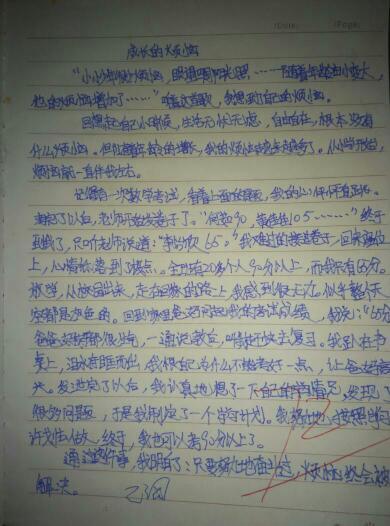 成长的烦恼
"小小少年很少烦恼，眼望四周阳光照……随着年龄由小变大，
他的烦恼增加了……"唱这首歌，我想到了自己的烦恼。
回想起自己小时候，生活无忧无虑，自由自在，根本没有
什么烦恼。但随着年龄的增长，我的烦恼也越来越多了。从小学开始，
烦恼就一直伴我左右。
记得有一次数学考试，看着上面的题，我的心
了以后，老师开始发卷子了。"90，105……"终于
到我了，只听老师说道："65。"我难过的接过卷子，回到座位
上，心情落到了极点。全班有20多个人90分以上，而我只有65分。
放学，从校园出来，走在回家的路上我感到很无力。似乎整个天
空都是灰色的。回到家里爸爸问起我的考试成绩，我说："65分
爸爸妈妈都很生气，一通说教后，叫我赶快去复习。我趴在书
桌上，泪水夺眶而出，我恨自己为什么不能考好一点，让爸妈高
兴。发泄完了以后，我认真地想了一下自己的学习情况，发现了
很多问题，于是我制定了一个学习计划。我努力地按照学习
计划去做，终于，我也可以考90分以上了。
通过这件事，我明白了：只要努力地奋斗过，烦恼总会被
解决。